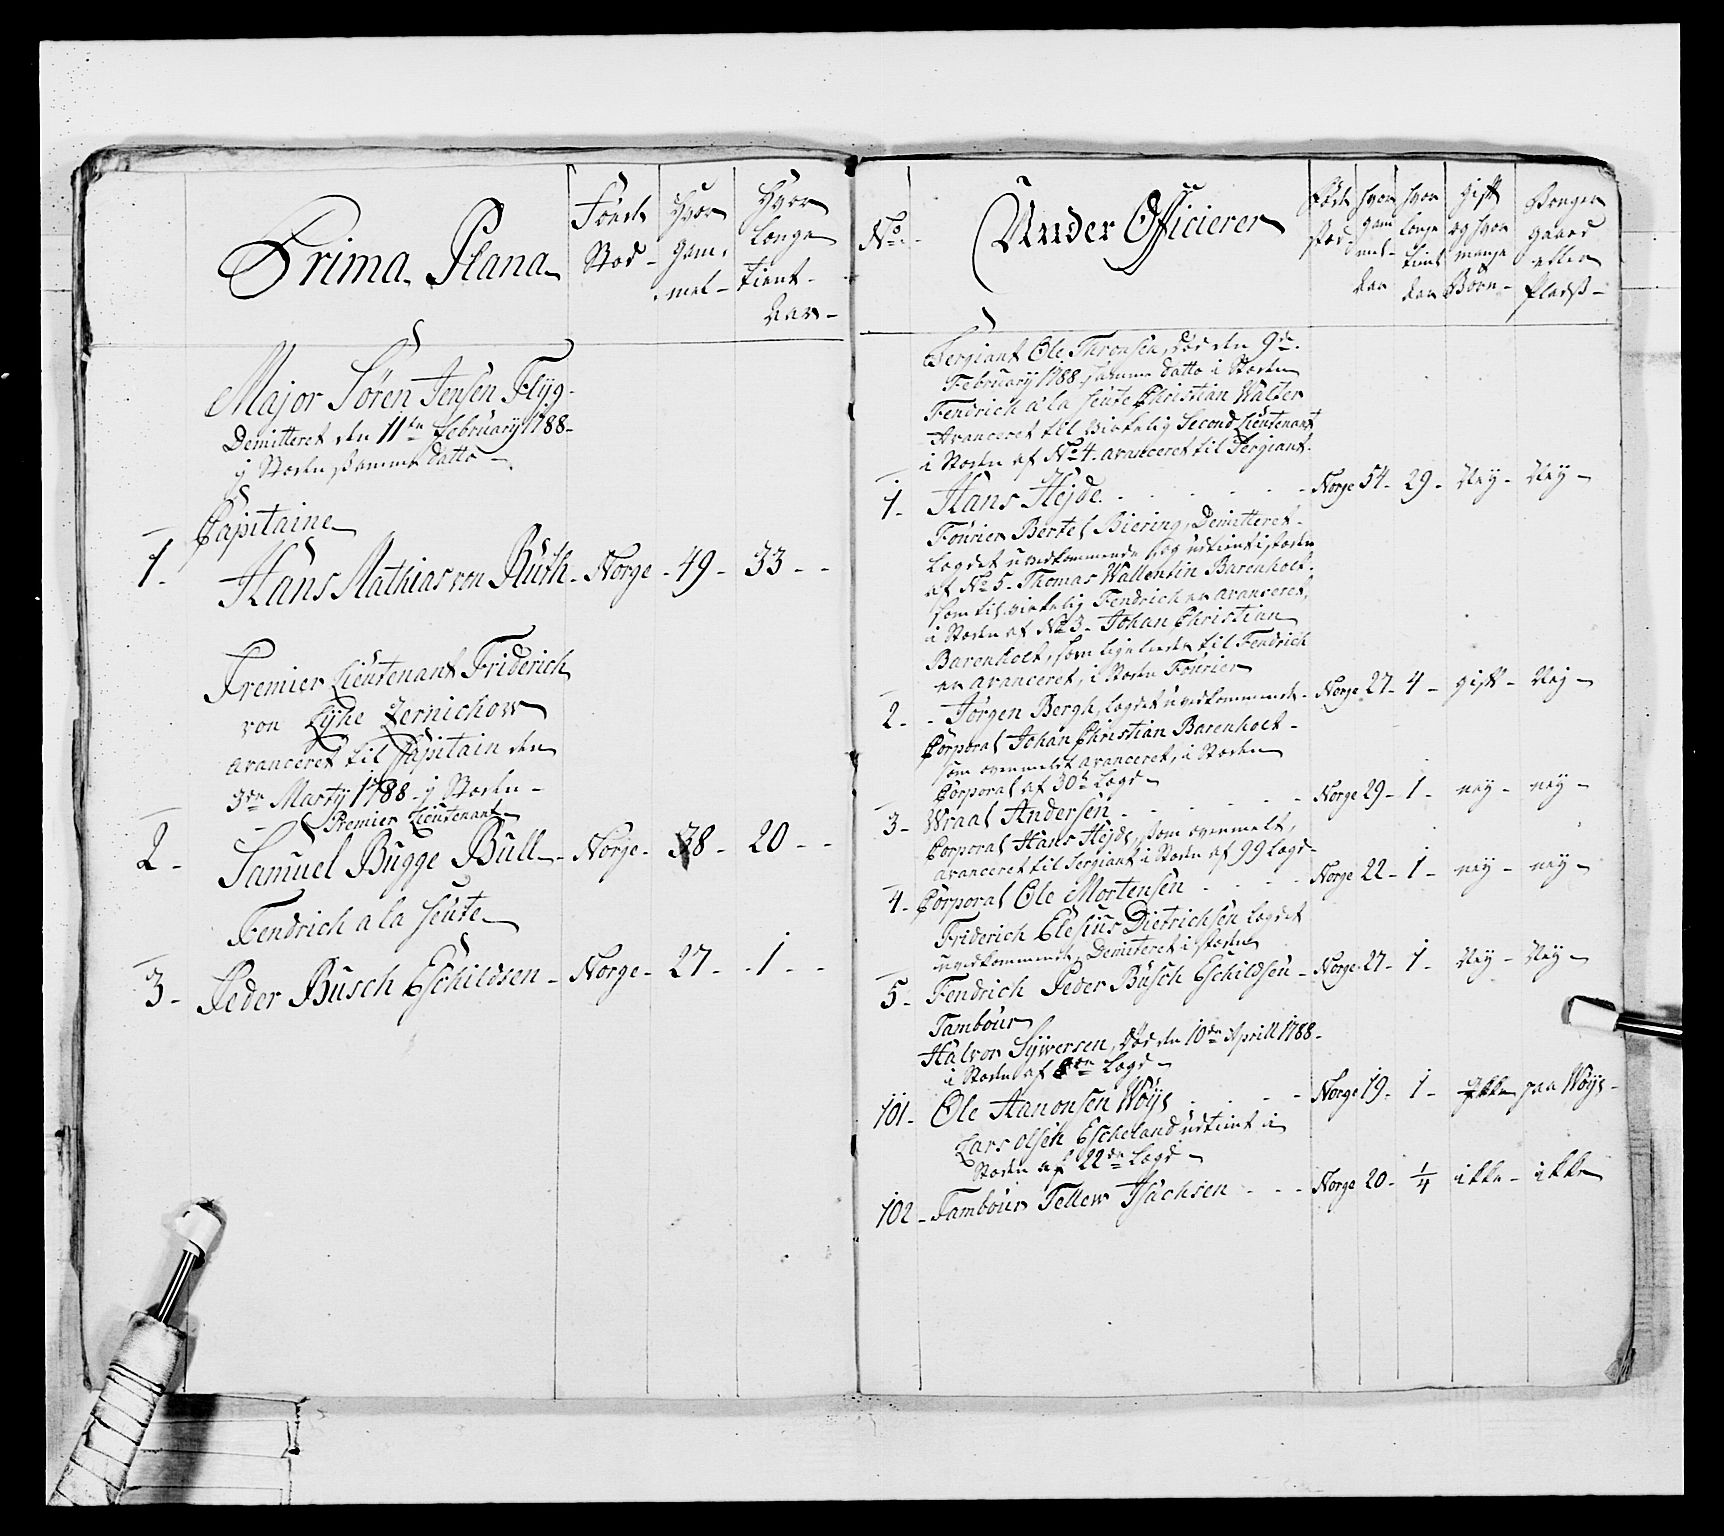 Prima Plana
Föde Stod -
Hvor gam: mel -
Hvor Længe tient - Aar -
Major Sören Jensen Flÿg -
Demitteret den 11te February 1788 -
j Steden samme datto -
Capitaine
1 - Hans Mathias von Rüth - Norge - 49 - 33 - -
Premier Lieutenant Friderich
von Zernichow
avanceret til Capitain den
3de Martÿ 1788 - j Steden -
Premier Lieutenant -
2 - Samuel Bugge Bull - Norge - 38 - 20 - -
Fendrich a la Suite -
3 - Peder Büsch Eschildsen - Norge - 27 - - 1 - -
No -
Under Officierer
Föde stæd -
hvor gam mel - Aar
hvor lenge tient Aar
gift og hvor mange Börn -
Bönger gaard eller Pladß -
Sergiant Ole Thronsen, död den 9de -
February 1788 samme datto i Steden
Fendrich a la Suite Christian Walter
Avanceret til Virkelig Second Lieutenant
i Steden af No 4 - avanceret til Sergiant -
1 - Hans Hejde - Norge 54 - 29 - Nej - Nej -
Fourier Bertel Biering, Demitteret -
Lægdet uvedkommende og udtient i steden
af No 5 - Thomas Wallentin Barenholt -
som til virkelig Fendrich er avanceret,
i Steden af No 3 - Johan Christian
Barenholt, som ligeleedes til Fendrich
er avanceret, i Steden Fourier
2 - - Jörgen Bergh, lægdet uvedkommende - Norge 27 - 4 - gift - Nej -
Corporal Johan Christian Barenholt -
som ovenmeldt avanceret, i Steden
Corporal af 30te Lægd -
3 - Wraal Andersen - Norge 29 - 1 - nej - nej -
Corporal Hans Hejde, som ovenmelt,
avanceret til Sergiant i Steden af 99 Lægd -
4 - Corporal Ole Mortensen - Norge 22 - 1 - nej - nej -
Friderich Elesius Dietrichsen Lægdet
uvedkommende, Demitteret i steden
5 - Fendrich Peder Büsch Eschildsen - Norge - 27 - 1 - Nej - Nej -
Tambour
Halvor Sÿversen, död den 10de Aprill 1788 -
i Steden af Lægd -
101 - Ole Aanonsen Wöÿs - Norge 19 - 1 - Ikke paa Wöÿs -
Lars Olsen Escheland udtient i
Steden af 22de Lægd -
102 - Tambour Tellew Isachsen - - - Norge 20 - 1/4 ikke - ikke